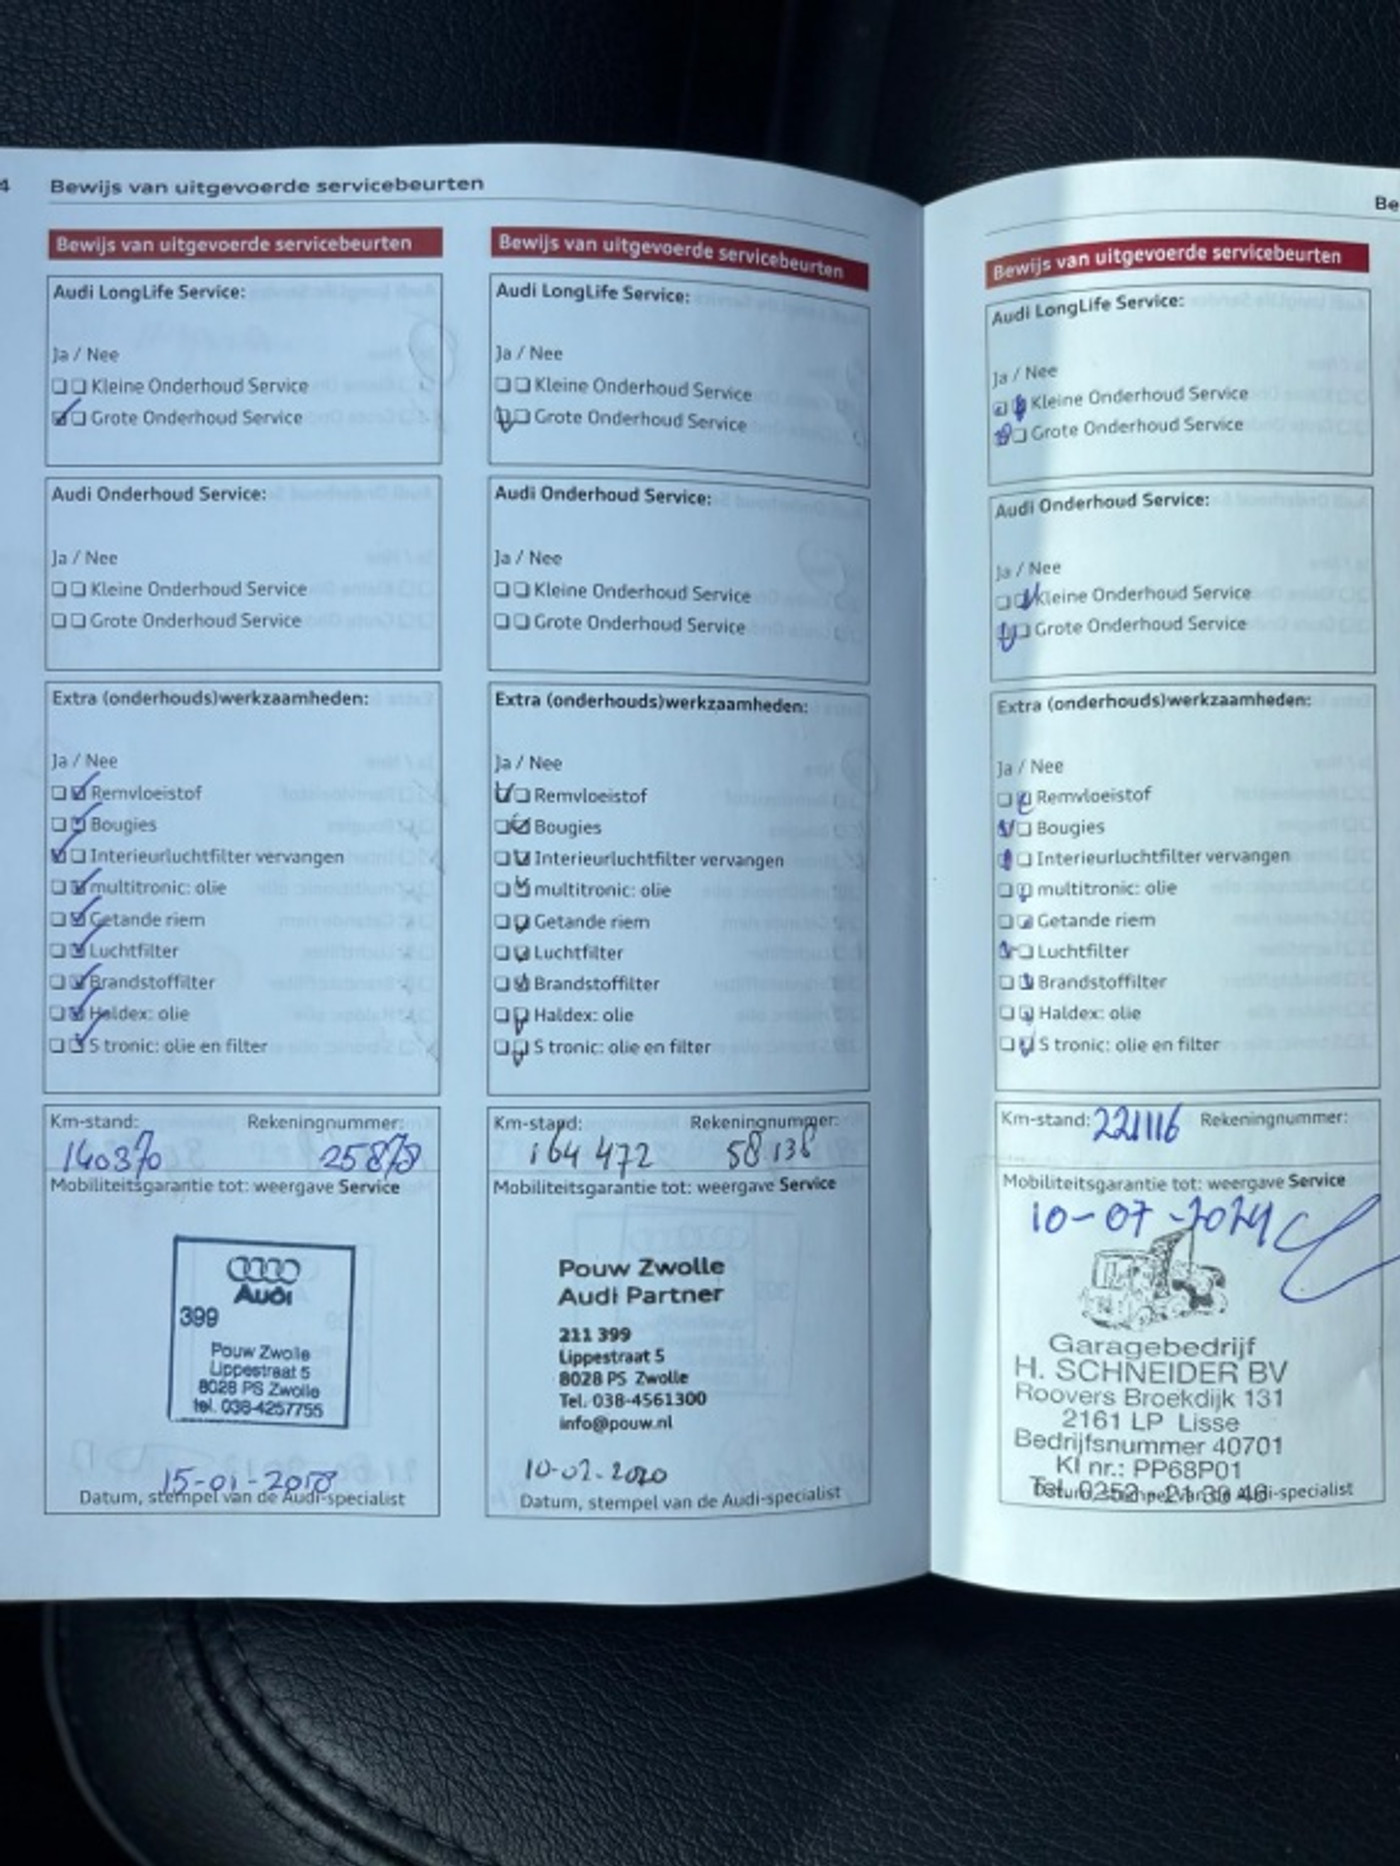 4 Bewijs van uitgevoerde servicebeurten
Bewijs van uitgevoerde servicebeurten
Audi LongLife Service:
Ja / Nee
Kleine Onderhoud Service
Grote Onderhoud Service
Audi Onderhoud Service:
Ja / Nee
Kleine Onderhoud Service
Grote Onderhoud Service
Extra (onderhouds)werkzaamheden:
Ja / Nee
Remvloeistof
Bougies
Interieurluchtfilter vervangen
multitronic: olie
Getande riem
Luchtfilter
Brandstoffilter
Haldex: olie
S tronic: olie en filter
Km-stand: Rekeningnummer:
140370 25878
Mobiliteitsgarantie tot: weergave Service
Audi
399
Pouw Zwolle
Lippestraat 5
8028 PS Zwolle
tel. 038-4257755
15-01-2018
Datum, stempel van de Audi-specialist
Bewijs van uitgevoerde servicebeurten
Audi LongLife Service:
Ja / Nee
Kleine Onderhoud Service
Grote Onderhoud Service
Audi Onderhoud Service:
Ja / Nee
Kleine Onderhoud Service
Grote Onderhoud Service
Extra (onderhouds)werkzaamheden:
Ja / Nee
Remvloeistof
Bougies
Interieurluchtfilter vervangen
multitronic: olie
Getande riem
Luchtfilter
Brandstoffilter
Haldex: olie
S tronic: olie en filter
Km-stand: Rekeningnummer:
164 472 58138
Mobiliteitsgarantie tot: weergave Service
Pouw Zwolle
Audi Partner
211 399
Lippestraat 5
8028 PS Zwolle
Tel. 038-4561300
info@pouw.nl
10-02-2020
Datum, stempel van de Audi-specialist
Be
Bewijs van uitgevoerde servicebeurten
Audi LongLife Service:
Ja / Nee
Kleine Onderhoud Service
Grote Onderhoud Service
Audi Onderhoud Service:
Ja / Nee
Kleine Onderhoud Service
Grote Onderhoud Service
Extra (onderhouds)werkzaamheden:
Ja / Nee
Remvloeistof
Bougies
Interieurluchtfilter vervangen
multitronic: olie
Getande riem
Luchtfilter
Brandstoffilter
Haldex: olie
S tronic: olie en filter
Km-stand: 221116 Rekeningnummer:
Mobiliteitsgarantie tot: weergave Service
10-07-2024
Garagebedrijf
H. SCHNEIDER BV
Roovers Broekdijk 131
2161 LP Lisse
Bedrijfsnummer 40701
KI nr.: PP68P01
Tel. 0252 - 21 30 46
Datum, stempel van de Audi-specialist